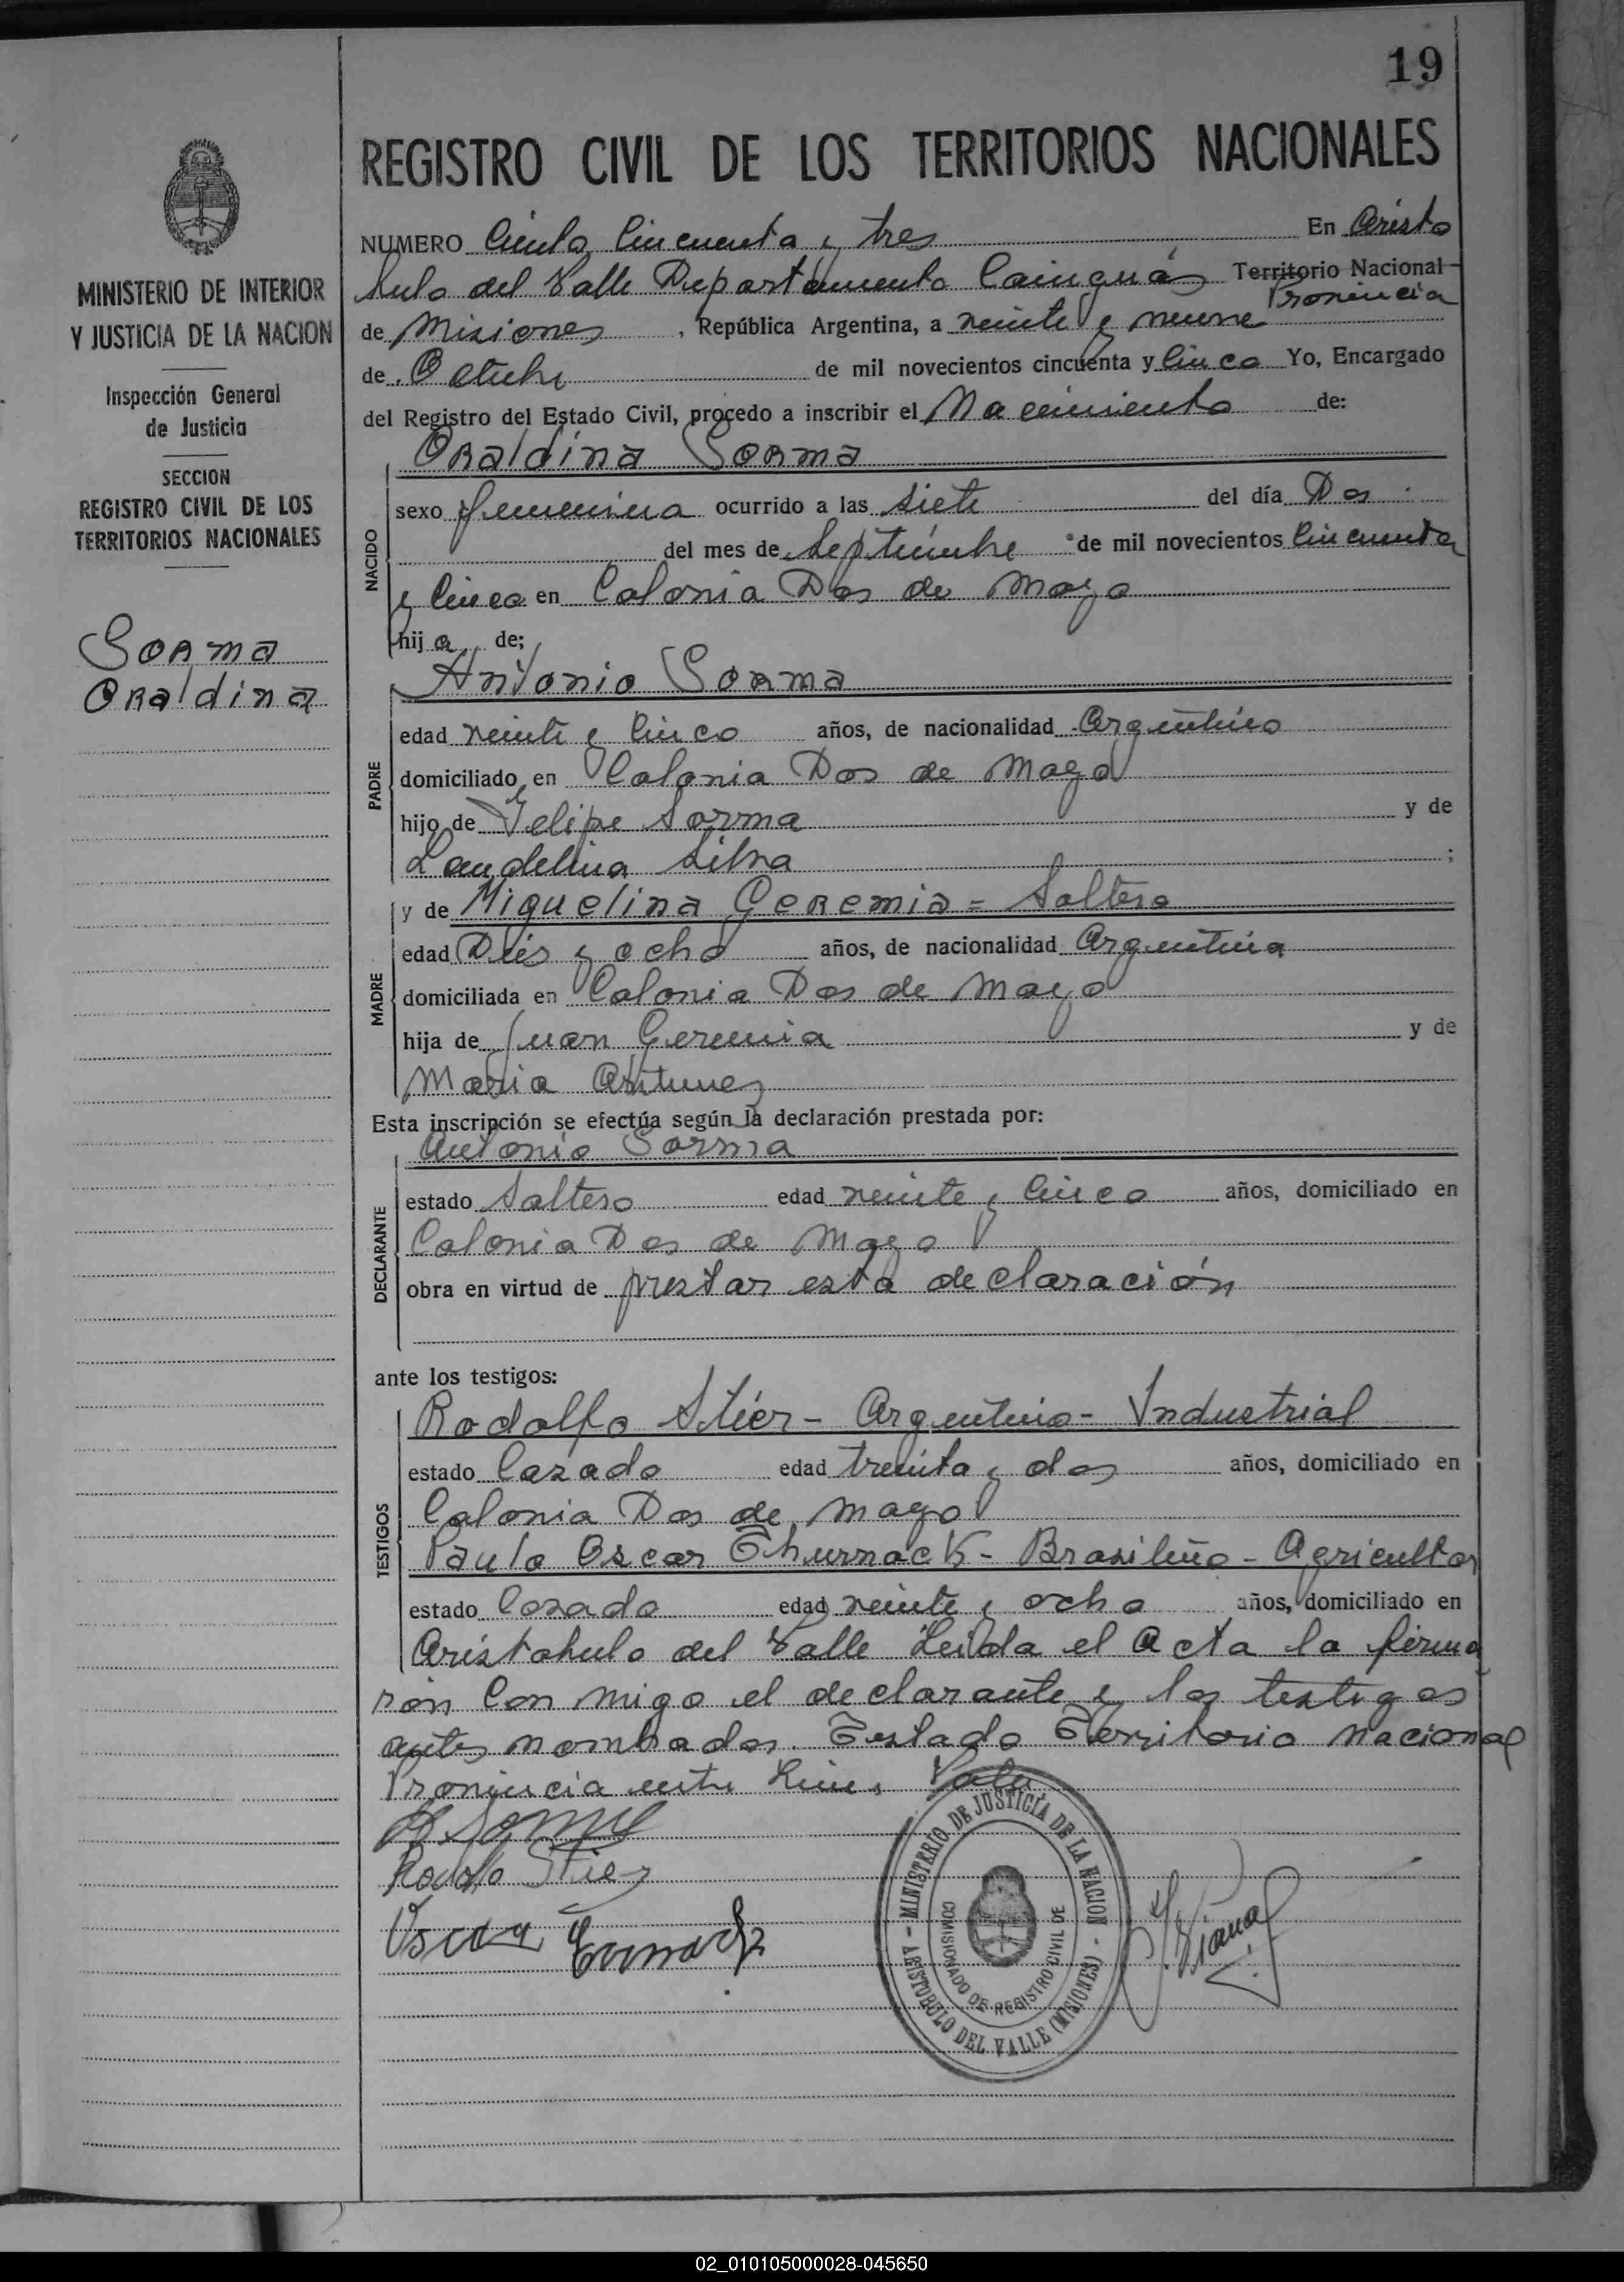 19
REGISTRO CIVIL DE LOS TERRITORIOS NACIONALES
MINISTERIO DE INTERIOR
Y JUSTICIA DE LA NACION
Inspección General
de Justicia
SECCION
REGISTRO CIVIL DE LOS
TERRITORIOS NACIONALES
Sorma
Oraldina
NUMERO Ciento Cincuenta y tres En Aristo
bulo del Valle Departamento Cainguás Territorio Nacional
Provincia
de Misiones, República Argentina, a veinte y nueve
de Octubre de mil novecientos cincuenta y Cinco Yo, Encargado
del Registro del Estado Civil, procedo a inscribir el Nacimiento de:
Oraldina Sorma
NACIDO
sexo femenina ocurrido a las siete del día Dos
del mes de Septiembre de mil novecientos Cincuenta
y Cinco en Colonia Dos de Mayo
hija de;
Antonio Sorma
PADRE
edad veinte y Cinco años, de nacionalidad Argentino
domiciliado en Colonia Dos de Mayo
hijo de Felipe Sorma y de
Laudelina Silva ;
MADRE
y de Miguelina Geremia = Soltera
edad Dies y ocho años, de nacionalidad Argentina
domiciliada en Colonia Dos de Mayo
hija de Juan Geremia y de
Maria Antunez
Esta inscripción se efectúa según la declaración prestada por:
Antonio Sorma
DECLARANTE
estado Soltero edad veinte y Cinco años, domiciliado en
Colonia Dos de Mayo
obra en virtud de prestar esta declaración
ante los testigos:
TESTIGOS
Rodolfo Stier - Argentino - Industrial
estado Casado edad treinta y dos años, domiciliado en
Colonia Dos de Mayo
Paulo Oscar Thurnack - Brasileño - Agricultor
estado Casado edad veinte y ocho años, domiciliado en
Aristobulo del Valle Leida el Acta la firma
ron Con migo el declarante y los testigos
antes nombrados. Testado Territorio Nacional
Provincia entre Lineas Vale
Rodolfo Stier
Oscar
MINISTERIO DE JUSTICIA DE LA NACION
COMISIONADO DE REGISTRO CIVIL DE
ARISTOBULO DEL VALLE (MISIONES)
02_010105000028-045650